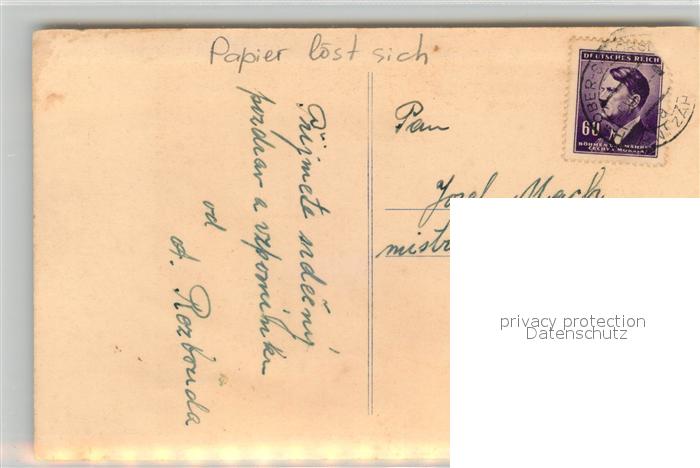 Papier löst sich
DEUTSCHES REICH
60
BÖHMEN UND MÄHREN
ČECHY A MORAVA
Přijmete srdečný
pozdrav a vzpomínku
od
A. Rozbouda
Pan
Josef Mach
mistr
privacy protection
Datenschutz